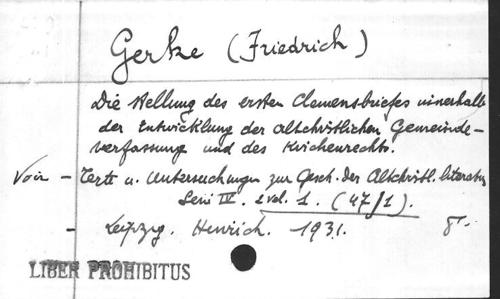 Gerke (Friedrich)
Die Stellung des ersten Clemensbriefes innerhalb
der Entwicklung der altchristlichen Gemeinde-
verfassung und des Kirchenrechts.
Voir - Texte u. Untersuchungen zur Gesch. der Altchristl. literatur
Serie IV. 2 vol. 1. (47/1).
- Leipzig. Hinrich. 1931. 8°.
LIBER PROHIBITUS